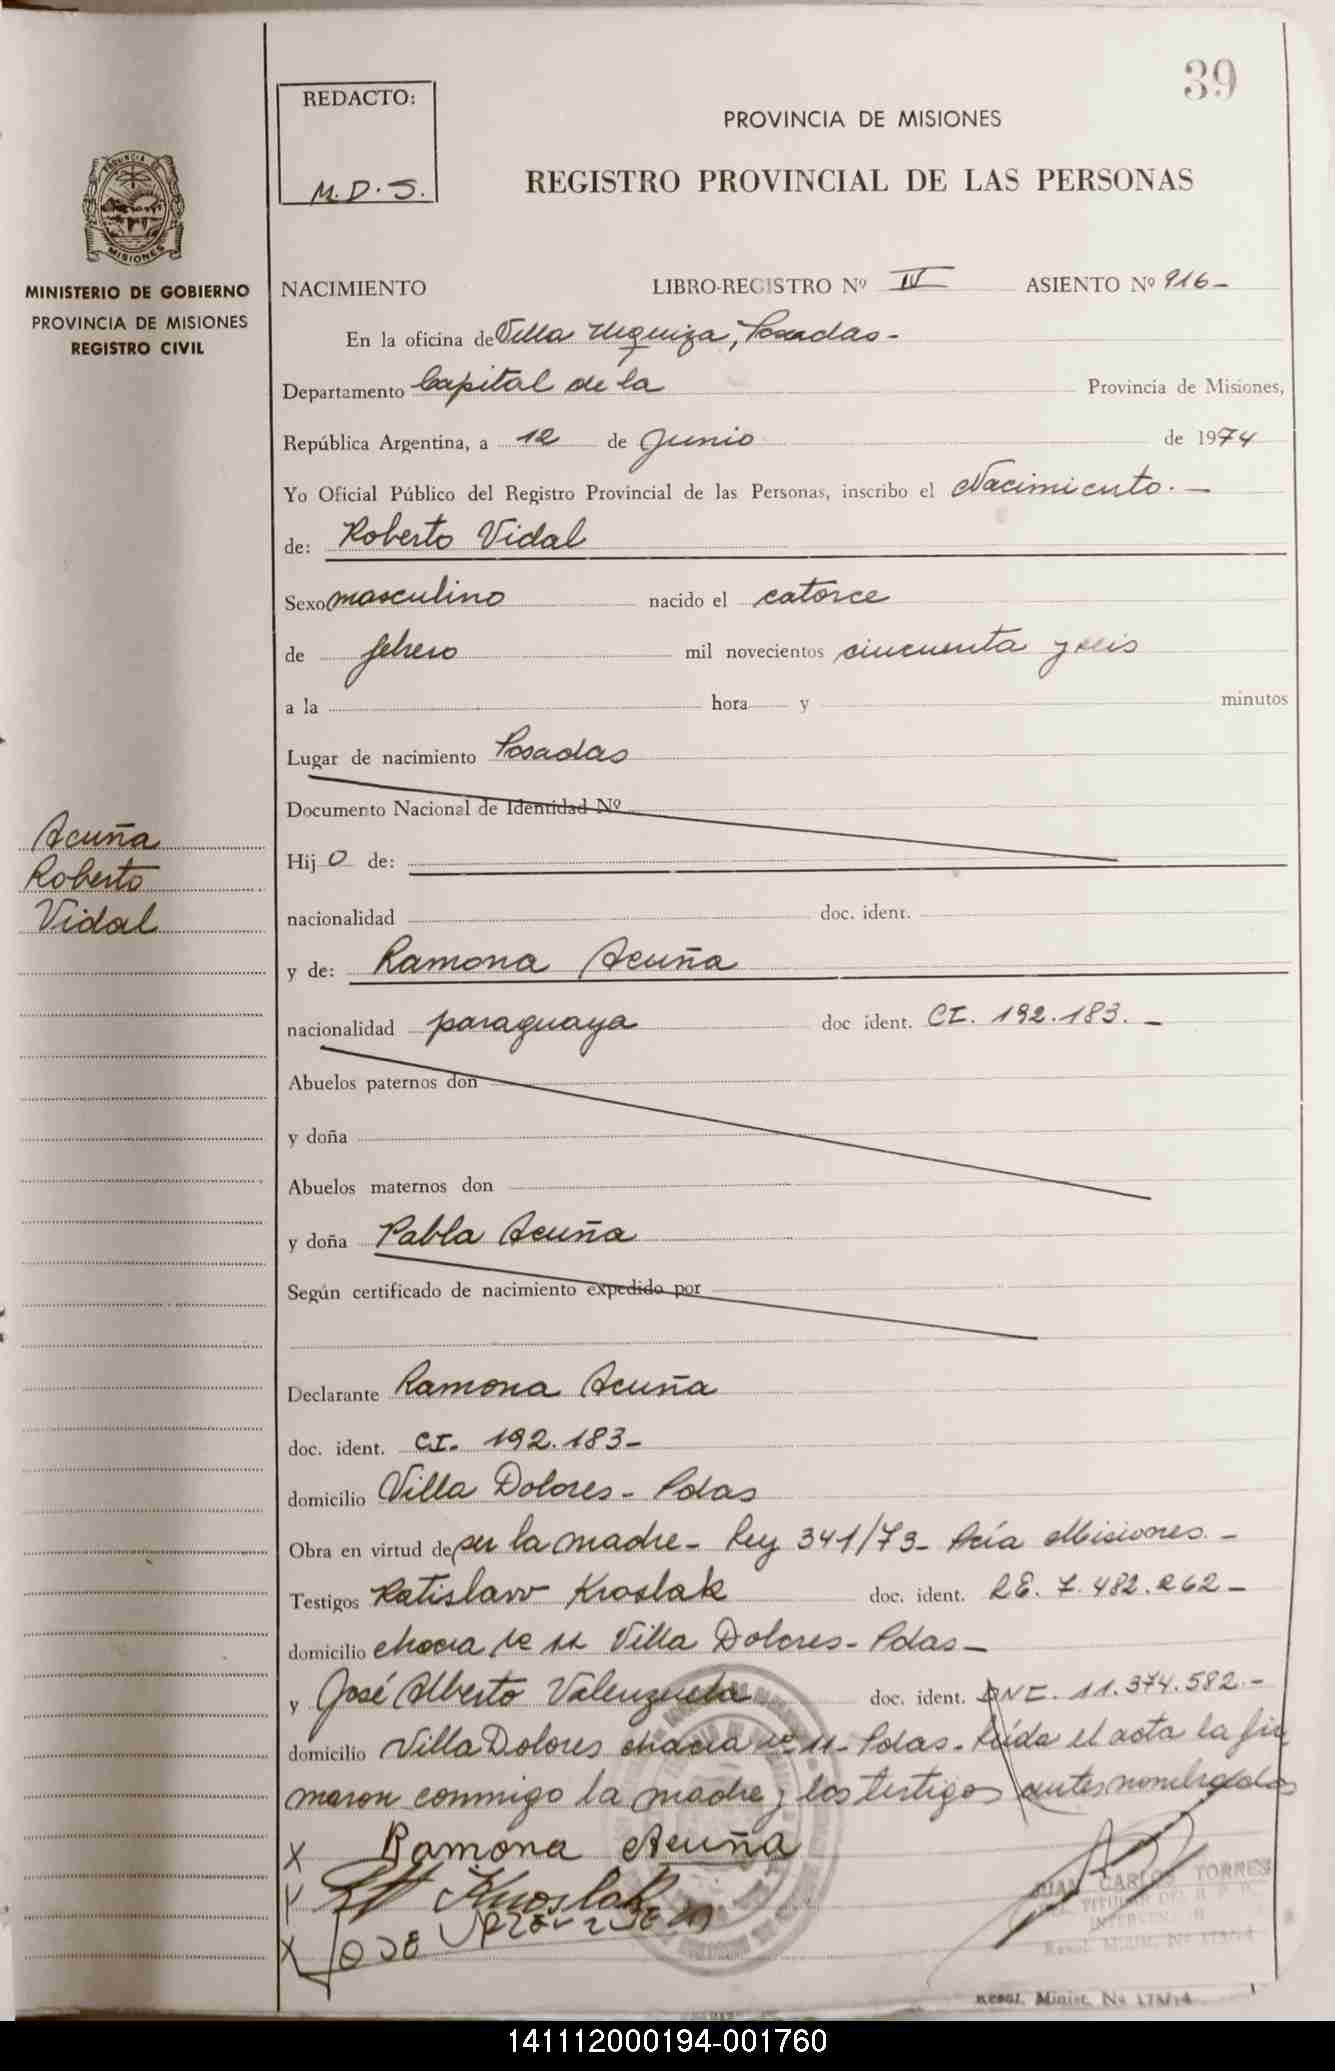 39
REDACTO:
M.D.S.
PROVINCIA DE MISIONES
REGISTRO PROVINCIAL DE LAS PERSONAS
PROVINCIA DE
MISIONES
MINISTERIO DE GOBIERNO
PROVINCIA DE MISIONES
REGISTRO CIVIL
NACIMIENTO LIBRO-REGISTRO Nº IV ASIENTO Nº 916-
En la oficina de Villa Urquiza, Posadas-
Departamento Capital de la Provincia de Misiones,
República Argentina, a 12 de Junio de 1974
Yo Oficial Público del Registro Provincial de las Personas, inscribo el Nacimiento.-
de: Roberto Vidal
Sexo masculino nacido el catorce
de febrero mil novecientos cincuenta y seis
a la hora y minutos
Lugar de nacimiento Posadas
Documento Nacional de Identidad Nº
Acuña
Roberto
Vidal
Hij o de:
nacionalidad doc. ident.
y de: Ramona Acuña
nacionalidad paraguaya doc ident. CI. 192.183.-
Abuelos paternos don
y doña
Abuelos maternos don
y doña Pabla Acuña
Según certificado de nacimiento expedido por
Declarante Ramona Acuña
doc. ident. CI. 192.183-
domicilio Villa Dolores - Pdas
Obra en virtud de ser la madre - Ley 341/73- Pcía Misiones.-
Testigos Ratislavo Kroslak doc. ident. LE. 7.482.262-
domicilio chacra 11 Villa Dolores - Pdas-
y José Alberto Valenzuela doc. ident. DNI. 11.374.582.-
domicilio Villa Dolores chacra nº 11- Pdas- Leída el acta la fir
maron conmigo la madre y los testigos antes nombrados
X Ramona Acuña
X Kroslak
X JOSE VALENZUELA
JUAN CARLOS TORRES
TITULAR DEL R. P. P.
Resol. Minist. Nº 173/74
Resol. Minist. Nº 173/74
141112000194-001760